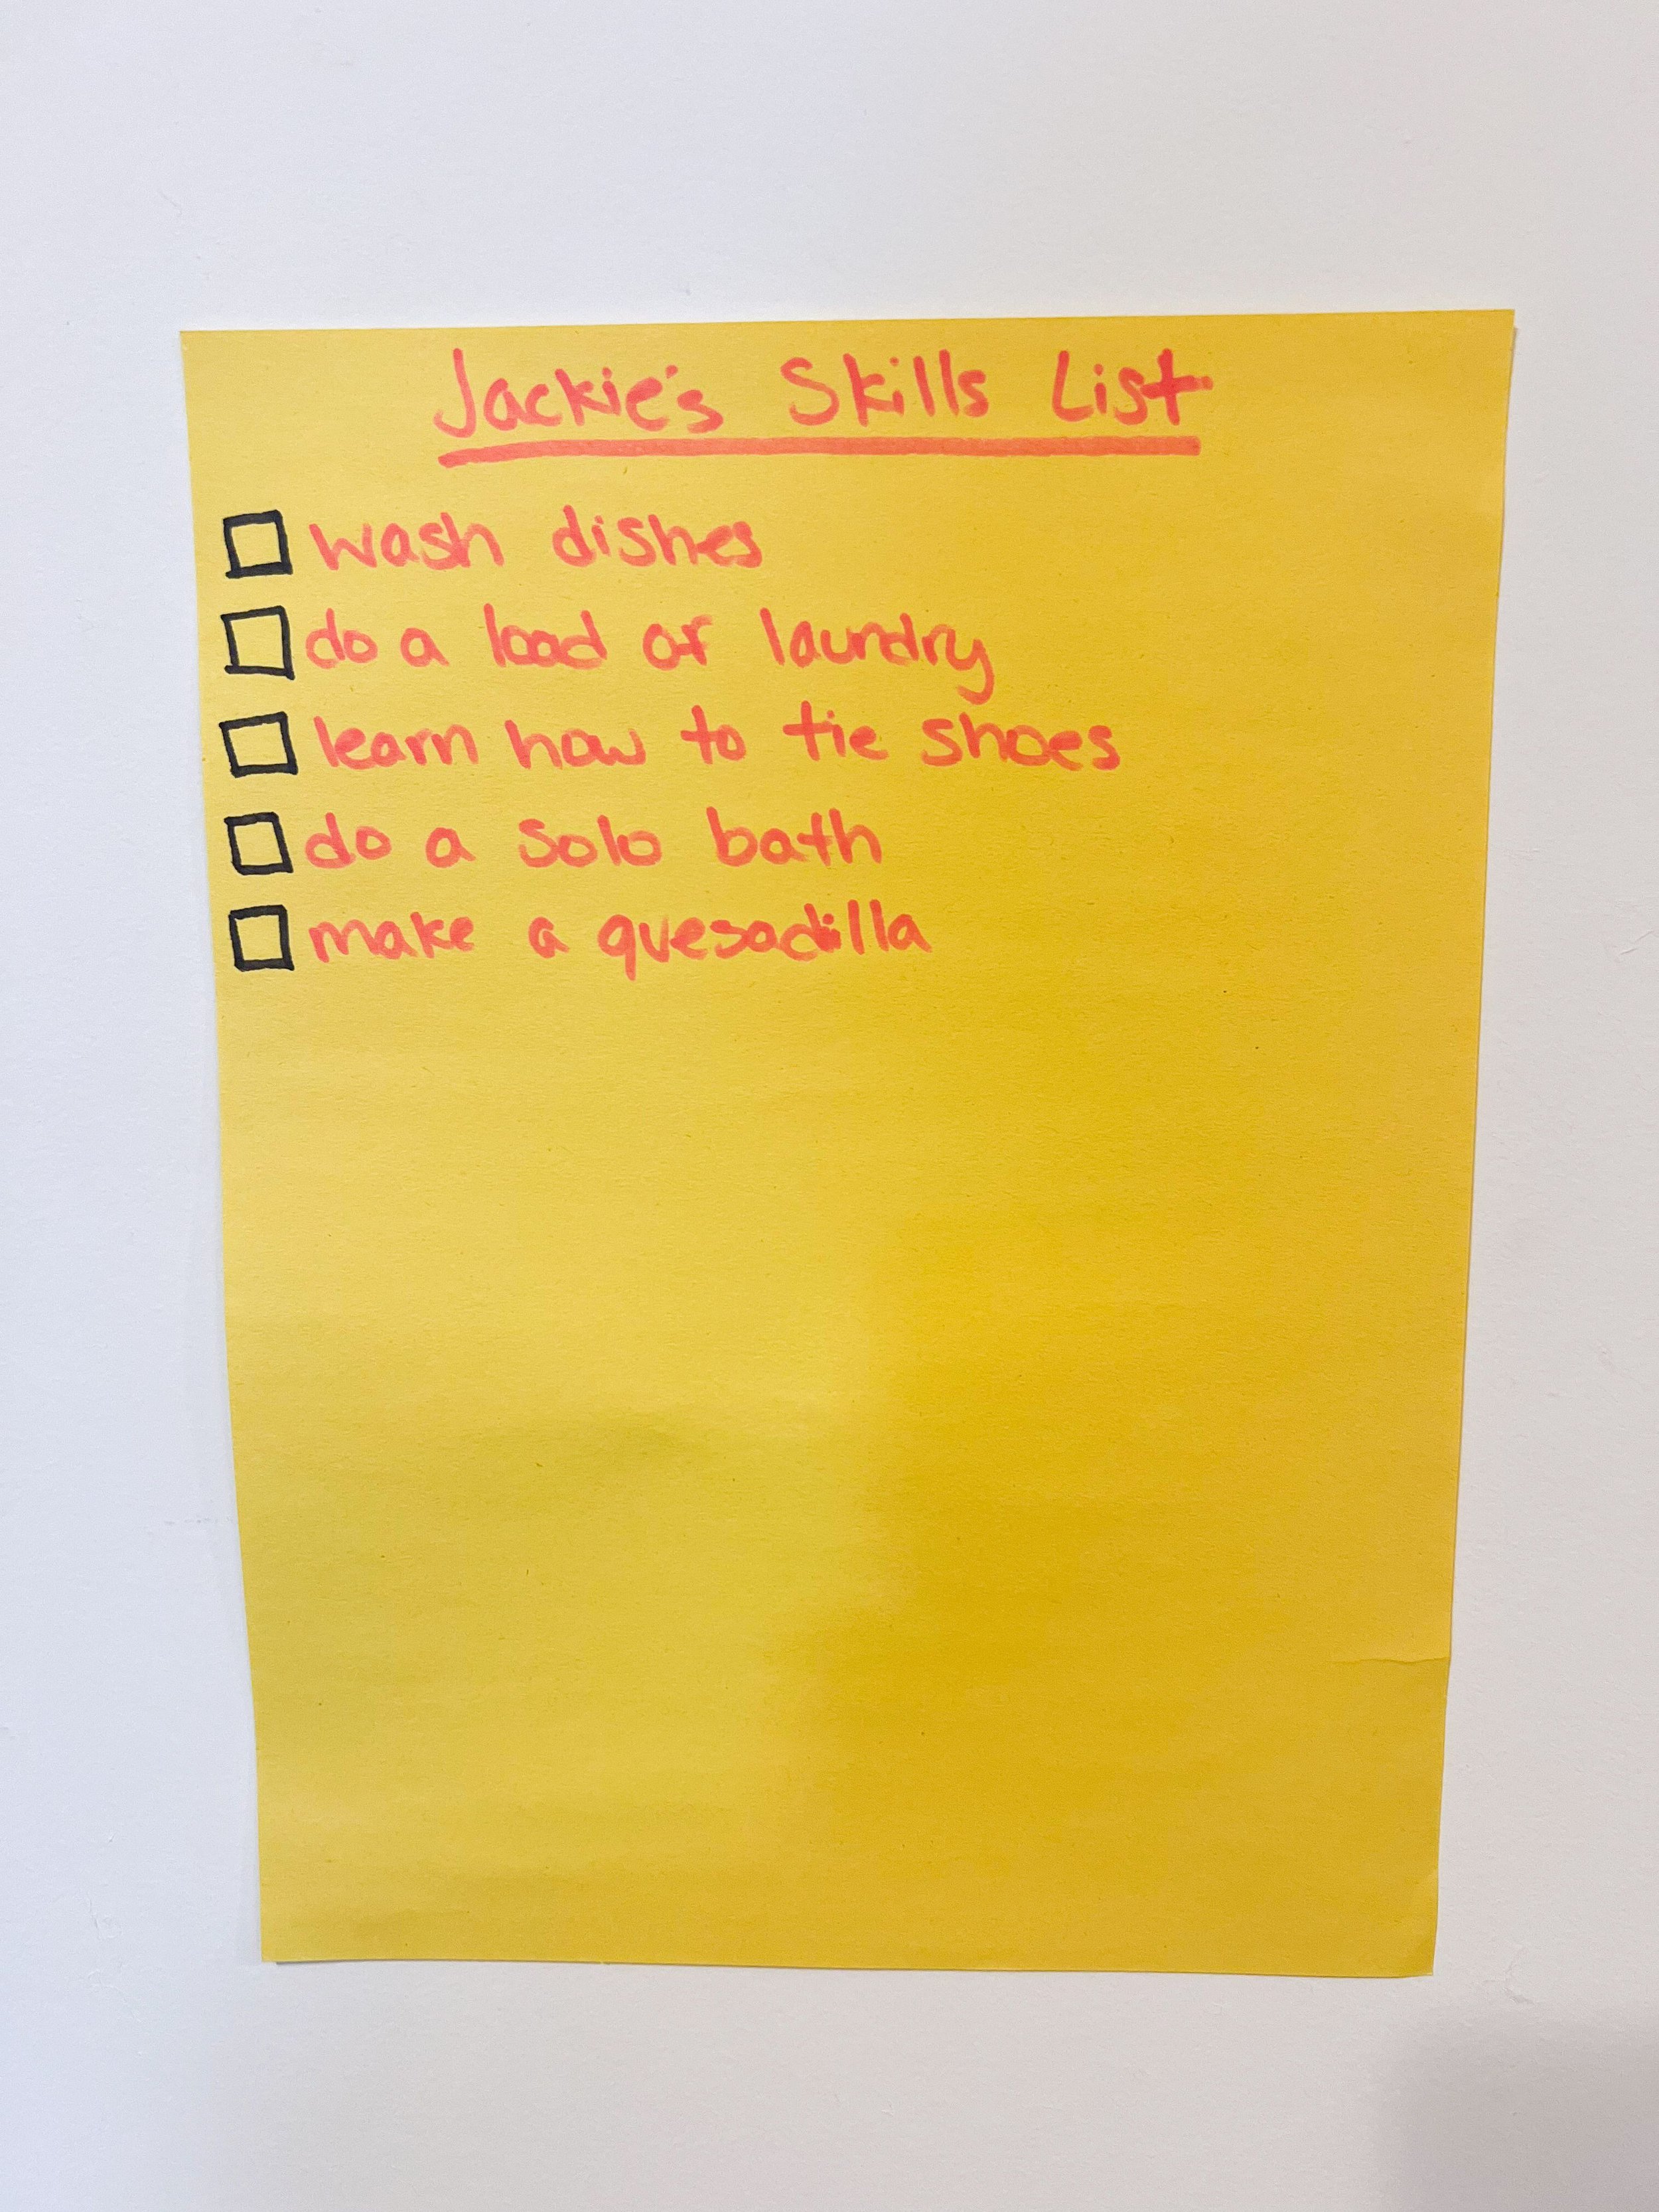 Jackie's Skills List
wash dishes
do a load of laundry
learn how to tie shoes
do a solo bath
make a quesadilla